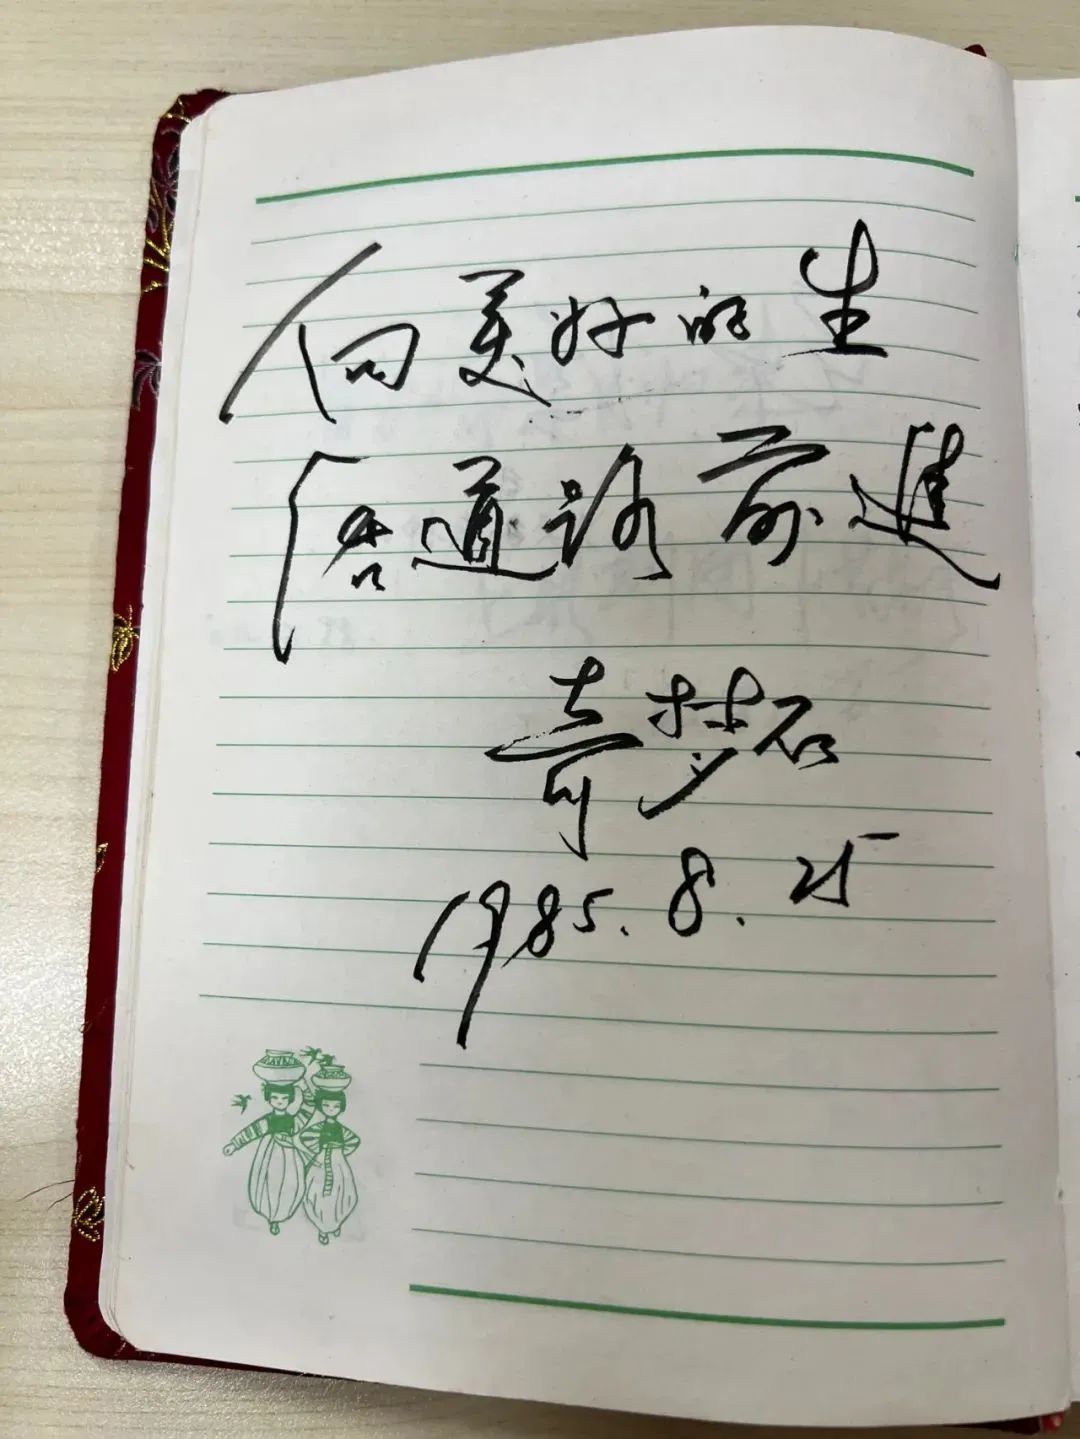 向美好的生
活道路前進
奇梦石
1985.8.25